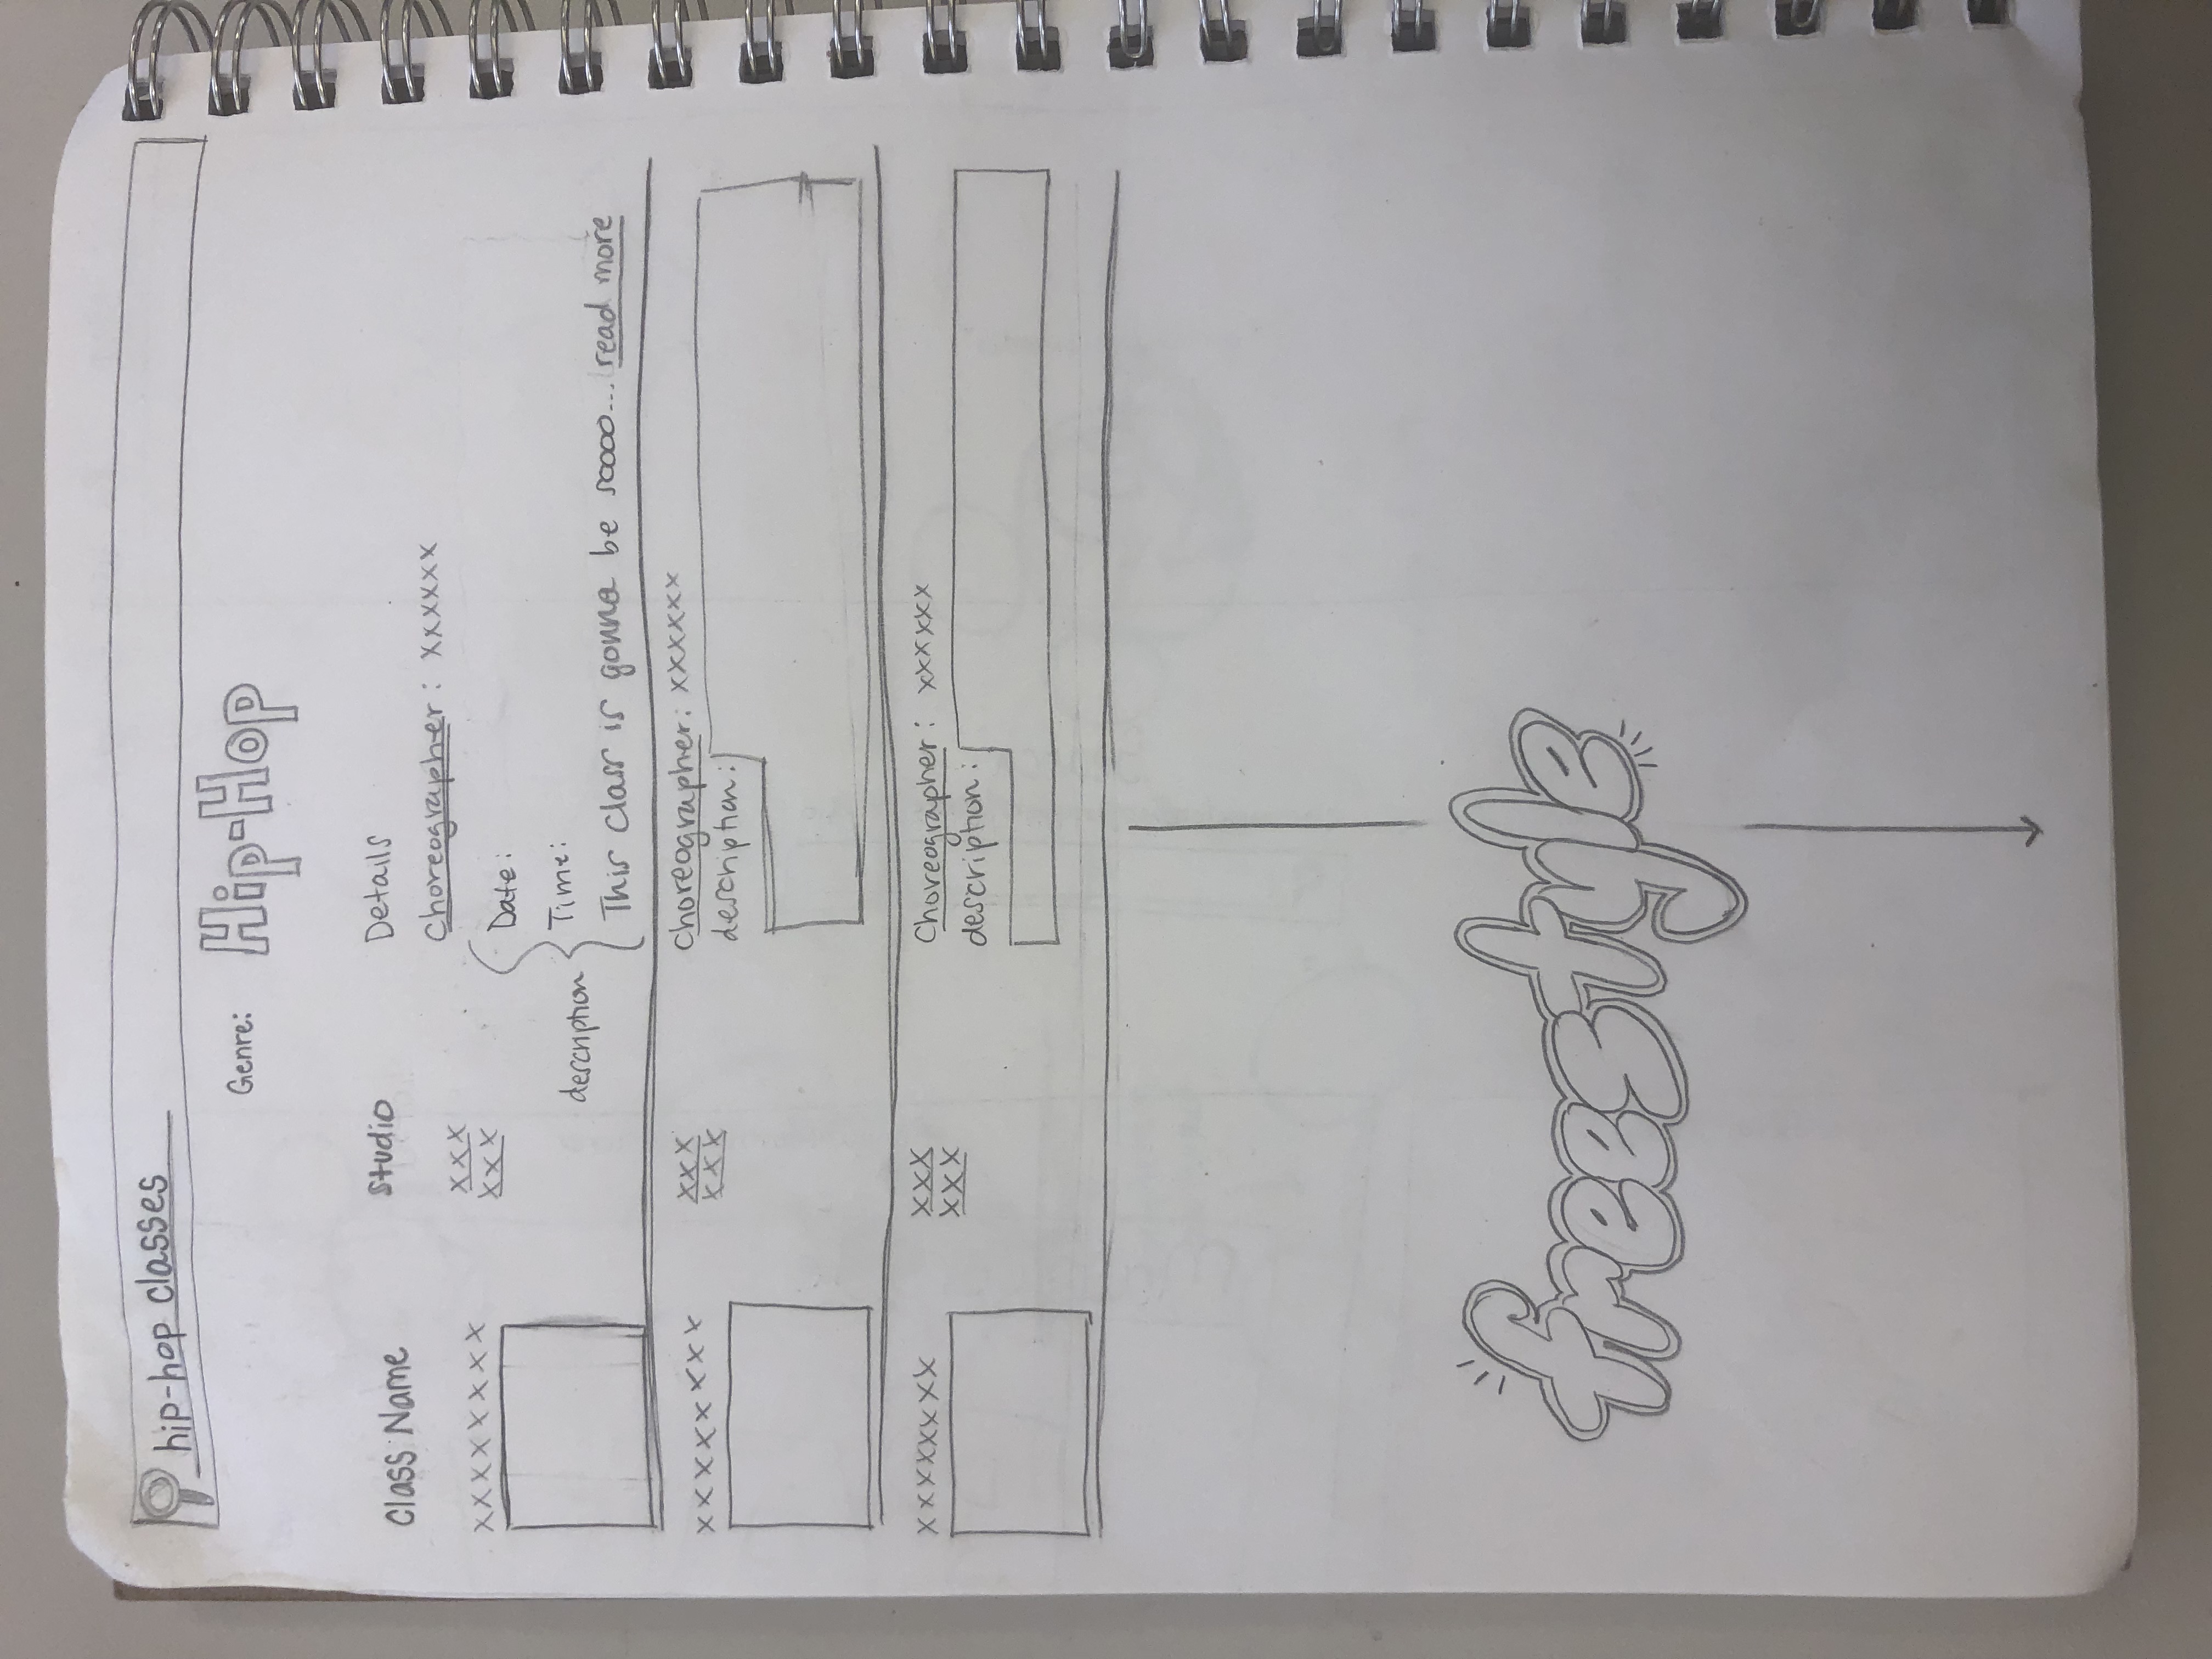 hip-hop classes
Genre: Hip-Hop
Class Name studio Details
choreographer: xxxxxx
xxxxxxxx xxx
xxx
Date:
description Time:
This class is gonna be soooo... read more
xxxxxxxx xxx choreographer: xxxxxx
xxx description:
xxxxxxxx xxx Choreographer: xxxxxx
xxx description:
freestyle